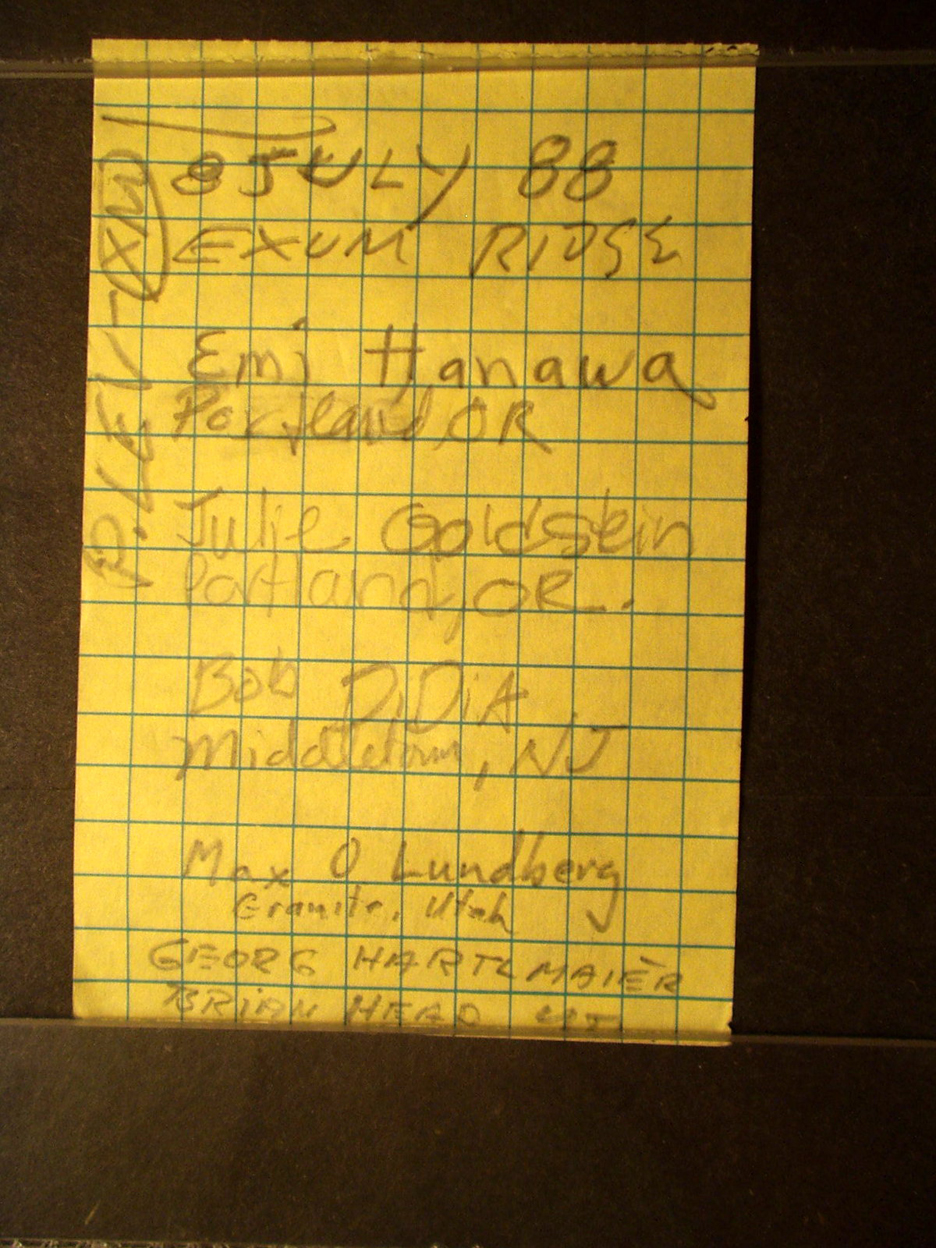 8 JULY 88
EXUM RIDGE
Emi Hanawa
Portland, OR
Julie Goldstein
Portland, OR.
Bob DiDiA
Middletown, NJ
Max O Lundberg
Granite, Utah
GEORG HARTLMAIER
BRIAN HEAD UT